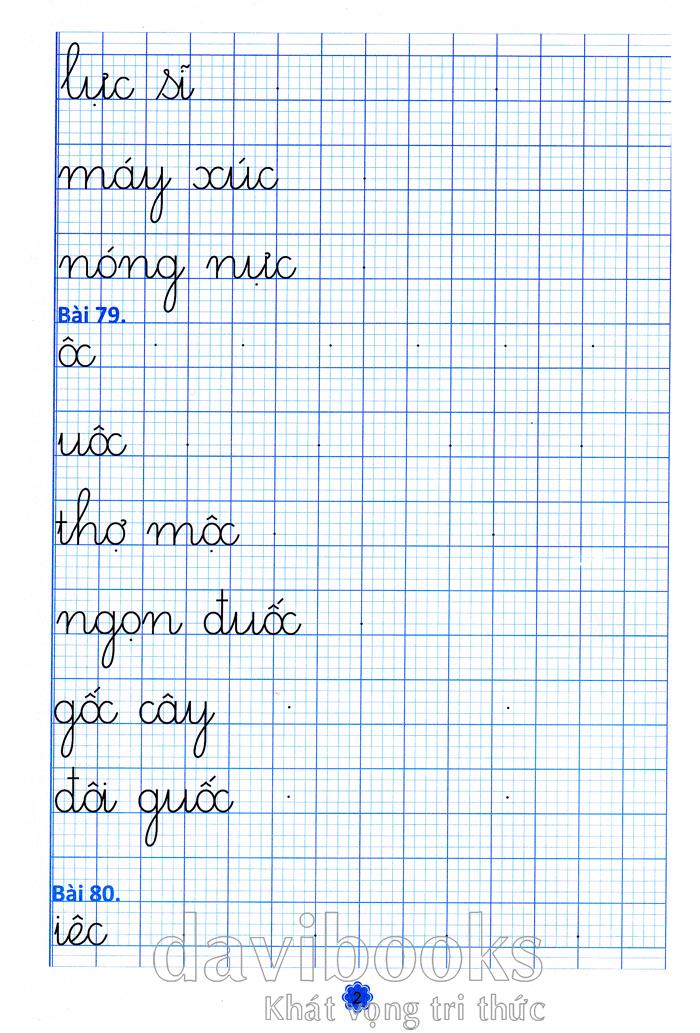 lực sĩ
máy xúc
nóng nực
Bài 79.
ôc
uôc
thợ mộc
ngọn đuốc
gốc cây
đôi guốc
Bài 80.
iêc
davibooks
2
Khát vọng tri thức